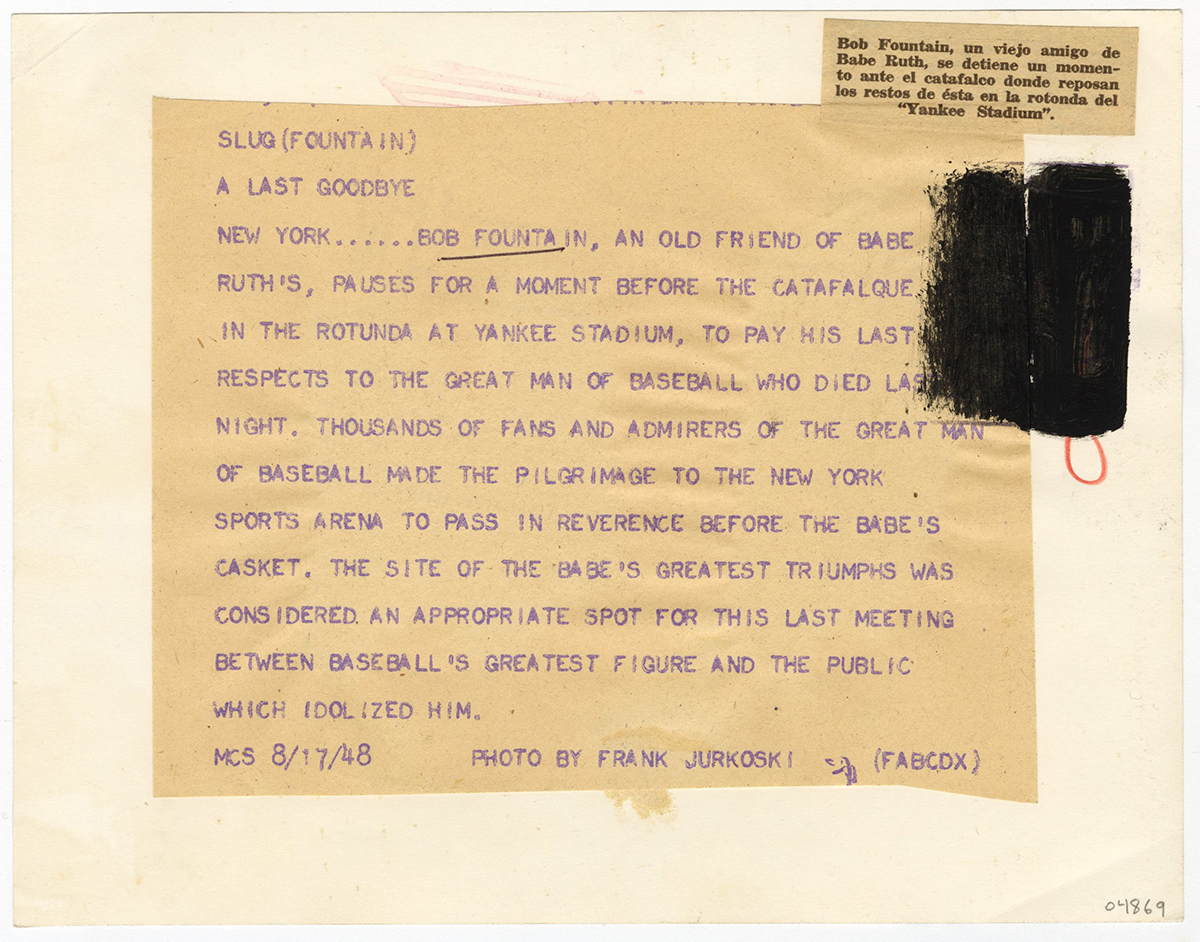 Bob Fountain, un viejo amigo de
Babe Ruth, se detiene un momen-
to ante el catafalco donde reposan
los restos de ésta en la rotonda del
"Yankee Stadium".
SLUG(FOUNTAIN)
A LAST GOODBYE
NEW YORK......BOB FOUNTAIN, AN OLD FRIEND OF BABE
RUTH'S, PAUSES FOR A MOMENT BEFORE THE CATAFALQUE
IN THE ROTUNDA AT YANKEE STADIUM, TO PAY HIS LAST
RESPECTS TO THE GREAT MAN OF BASEBALL WHO DIED LAS
NIGHT. THOUSANDS OF FANS AND ADMIRERS OF THE GREAT MAN
OF BASEBALL MADE THE PILGRIMAGE TO THE NEW YORK
SPORTS ARENA TO PASS IN REVERENCE BEFORE THE BABE'S
CASKET. THE SITE OF THE BABE'S GREATEST TRIUMPHS WAS
CONSIDERED AN APPROPRIATE SPOT FOR THIS LAST MEETING
BETWEEN BASEBALL'S GREATEST FIGURE AND THE PUBLIC
WHICH IDOLIZED HIM.
MCS 8/17/48 PHOTO BY FRANK JURKOSKI (FABCDX)
04869